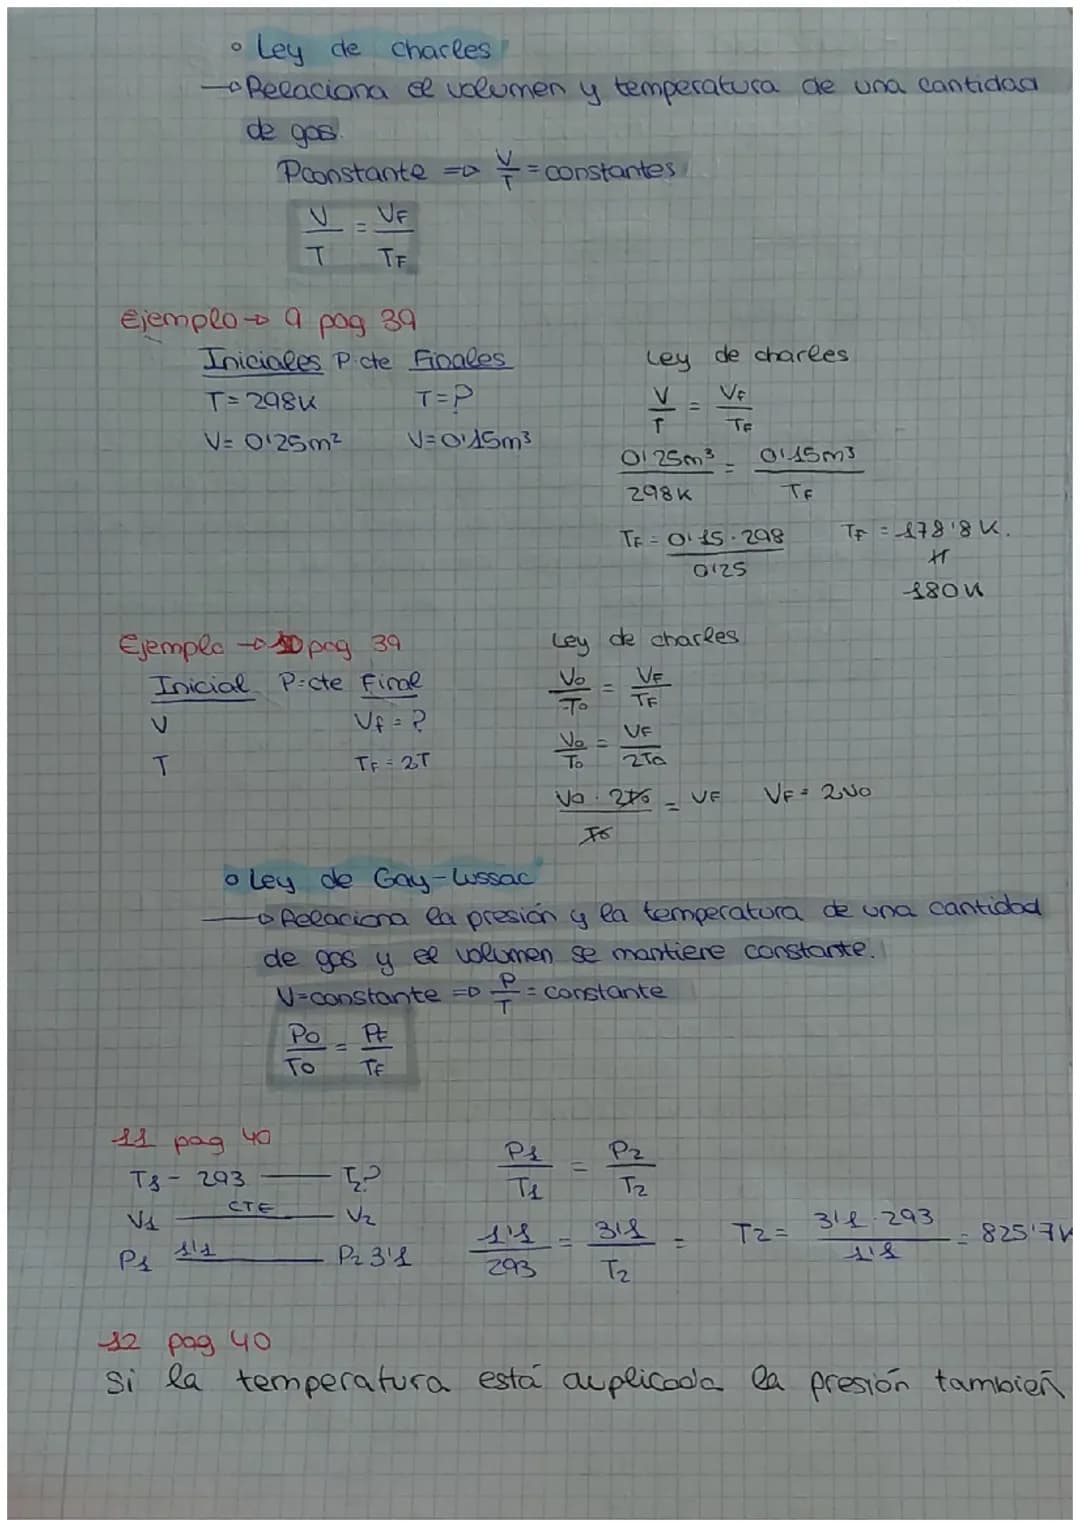 ° Ley de charles
→ Relaciona el volumen y temperatura de una cantidad
de gas.
Pconstante => V/T = constantes
V/T = VF/TF
Ejemplo → 9 pag 39
Iniciales P.cte Finales
T= 298K T=?
V= 0'25m² V=0'15m³
Ley de charles
V/T = VF/TF
0'25m³/298K = 0'15m³/TF
TF = 0'15·298/0'25 TF = 178'8 K.
180K
Ejemplo → 10 pag 39
Inicial P=cte Final
V Vf = ?
T TF = 2T
Ley de charles
Vo/To = VF/TF
Vo/To = VF/2To
Vo · 2To/To = VF VF = 2Vo
° Ley de Gay-Lussac
→ Relaciona la presión y la temperatura de una cantidad
de gas y el volumen se mantiene constante.
V=constante => P/T = constante
Po/To = Pf/TF
11 pag 40
T1 - 293 — T2?
V1 — CTE — V2
P1 1'1 — P2 3'1
P1/T1 = P2/T2
1'1/293 = 3'1/T2 = T2 = 3'1·293/1'1 = 825'7K
12 pag 40
Si la temperatura está duplicada la presión también